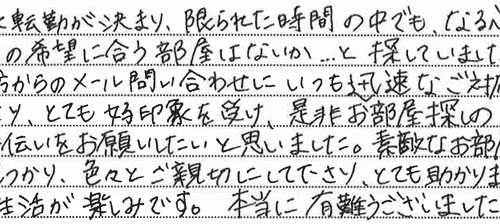 転勤が決まり、限られた時間の中でも、なるべ
の希望に合う部屋はないか...と探していました
からのメール問い合わせにいつも迅速なご対応
り、とても好印象を受け、是非お部屋探しの
伝いをお願いしたいと思いました。素敵なお部屋
つかり、色々とご親切にして下さり、とても助かりま
生活が楽しみです。本当に有難うございました